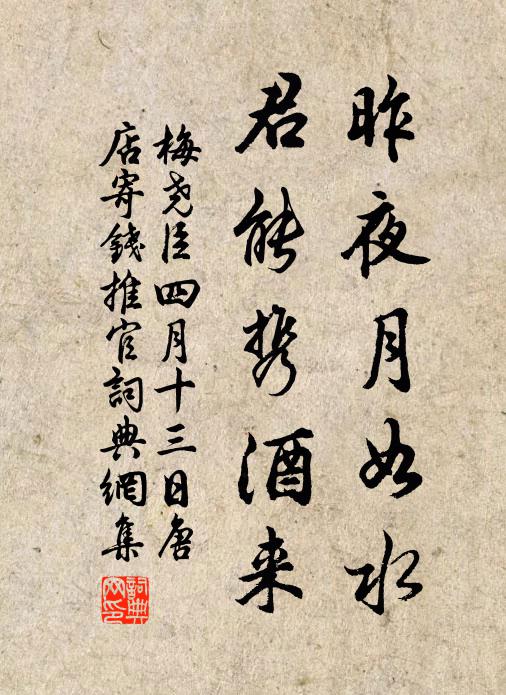 昨夜月如水
君能携酒来
梅尧臣四月十三日唐
店寄錢推官詞典網集
詞典
网印